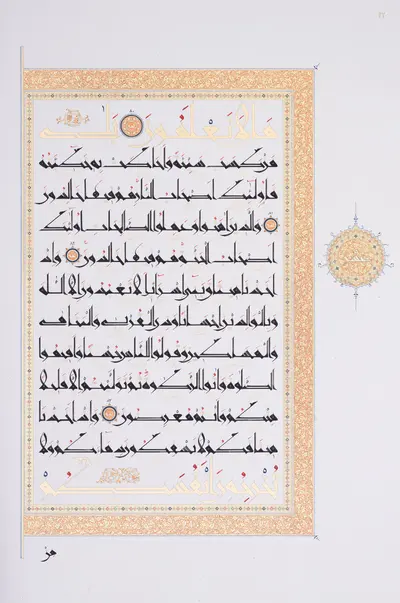 ما لا تعلمون بلى
من كسب سيئة واحاطت به خطيئته
فاولئك اصحاب النار هم فيها خالدون
والذين امنوا وعملوا الصالحات اولئك
اصحاب الجنة هم فيها خالدون واذ
اخذنا ميثاق بني اسرائيل لا تعبدون الا الله
وبالوالدين احسانا وذي القربى واليتامى
والمساكين وقولوا للناس حسنا واقيموا
الصلوة واتوا الزكوة ثم توليتم الا قليلا
منكم وانتم معرضون واذ اخذنا
ميثاقكم لا تسفكون دماءكم ولا
تخرجون انفسكم
من